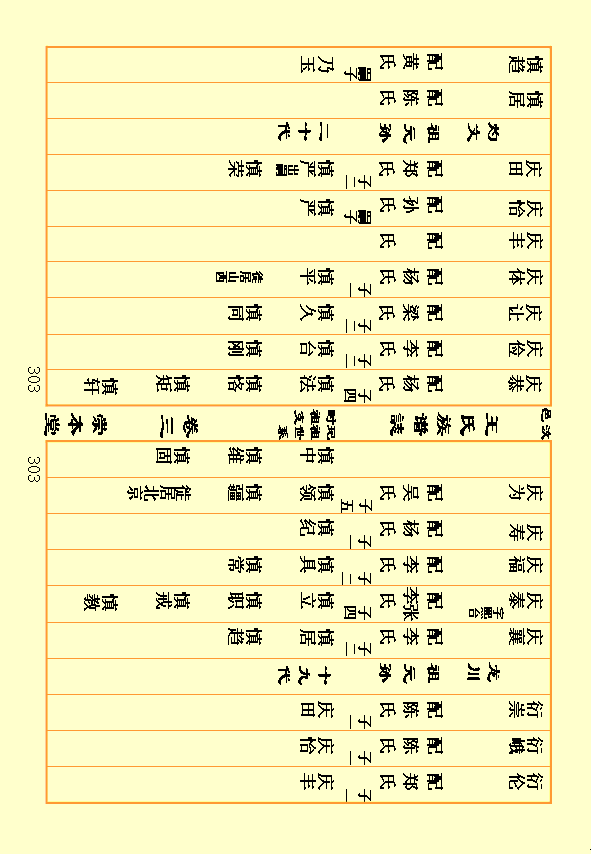 衍伦 配郑氏 子一 庆丰
衍峨 配陈氏 子一 庆恰
衍崇 配陈氏 子一 庆田
龙川祖元孙十九代
庆襄 配李氏 子二 慎居 慎趋
庆泰 配李张氏 子四 慎立 慎职 慎戒 慎教
庆福 配李氏 子二 慎具 慎常
庆寿 配杨氏 子一 慎纪
庆为 配吴氏 子五 慎领 慎疆 徙居北京
慎中 慎维 慎固
303
汶邑 王氏族谱誌 玘祖世系 时祖支 卷三 崇本堂
303
庆泰 配杨氏 子四 慎法 慎恪 慎矩 慎轩
庆俭 配李氏 子二 慎台 慎刚
庆让 配梁氏 子二 慎久 慎同
庆体 配杨氏 子一 慎平 徙居山西
庆丰 配 氏
庆恰 配孙氏 嗣子 慎严
庆田 配郑氏 子二 慎严出嗣 慎荣
灼文祖元孙二十代
慎居 配陈氏
慎趋 配黄氏 嗣子 乃玉